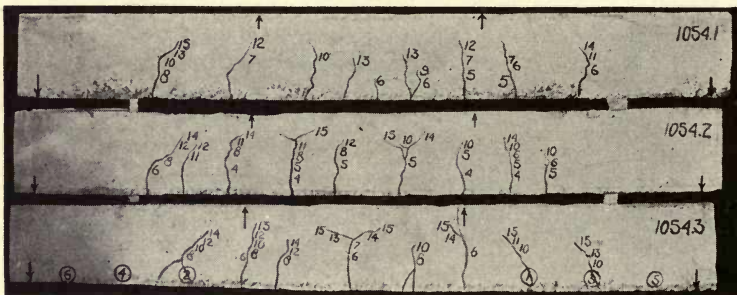 1054.1
15
13
10
8
12
7
10
13
6
13
9
6
12
7
5
7
6
5
14
11
6
1054.2
14
12
8
6
12
11
14
11
8
4
15
11
8
5
4
12
8
5
15
10
14
5
10
5
4
14
10
6
5
4
10
6
5
1054.3
14
10
12
6
6
14
12
15
13
7
6
14
15
10
6
15
14
6
15
11
10
15
13
10
5
4
2
4
5